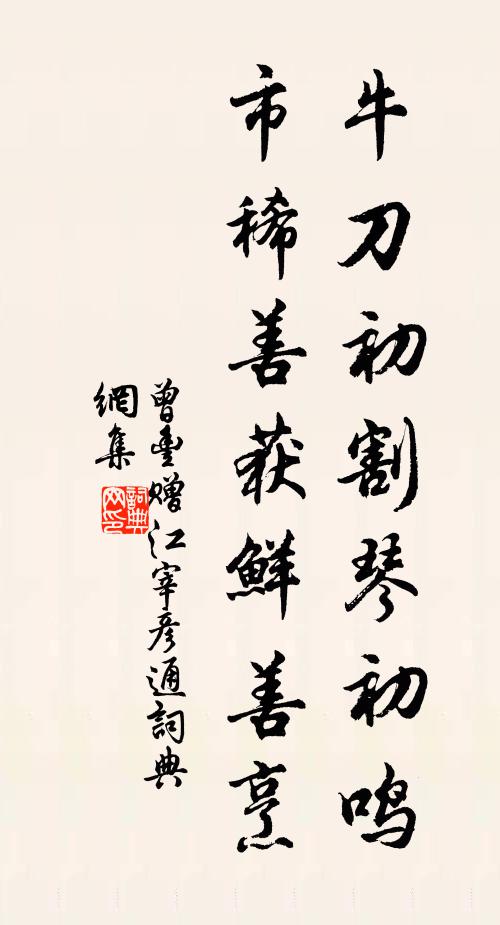 牛刀初割琴初鸣
市稀善获鮮善烹
曾豊赠江宰彦通詞典
網集
詞典
网印